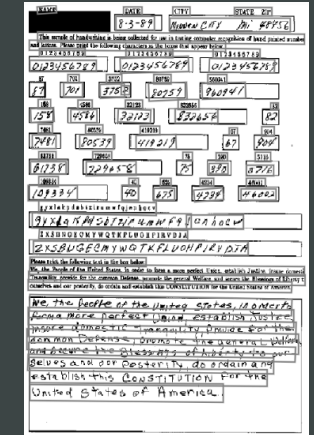 NAME DATE CITY STATE ZIP
8-3-89 MIDDEN CITY Mi 48456
This sample of handwriting is being collected for use in testing computer recognition of hand printed numbers
and letters. Please print the following characters in the boxes that appear below.
0123456789 0123456789 0123456789
0123456789 0123456789 0123456789
87 701 3752 80759 960941
87 701 3752 80759 960941
158 4586 32123 832656 82
158 4586 32123 832656 82
7481 80539 419219 67 904
7481 80539 419219 67 904
61738 729658 75 390 5716
61738 729658 75 390 5716
109334 40 675 4234 46002
109334 40 675 4234 46002
ZXSBUGECMYWQTKFLUOHPIRVDJA
Please print the following text in the box below:
We, the People of the United States, in order to form a more perfect Union, establish Justice, insure domestic
Tranquility, provide for the common Defense, promote the general Welfare, and secure the Blessings of Liberty to
ourselves and our posterity, do ordain and establish this CONSTITUTION for the United States of America.
We, the People of the United States, in order to
form a more perfect Union, establish Justice,
insure domestic Tranquility, provide for the
common Defense, promote the general Welfare,
and secure the Blessings of Liberty to our
selves and our Posterity, do ordain and
establish this CONSTITUTION for the
United States of America.